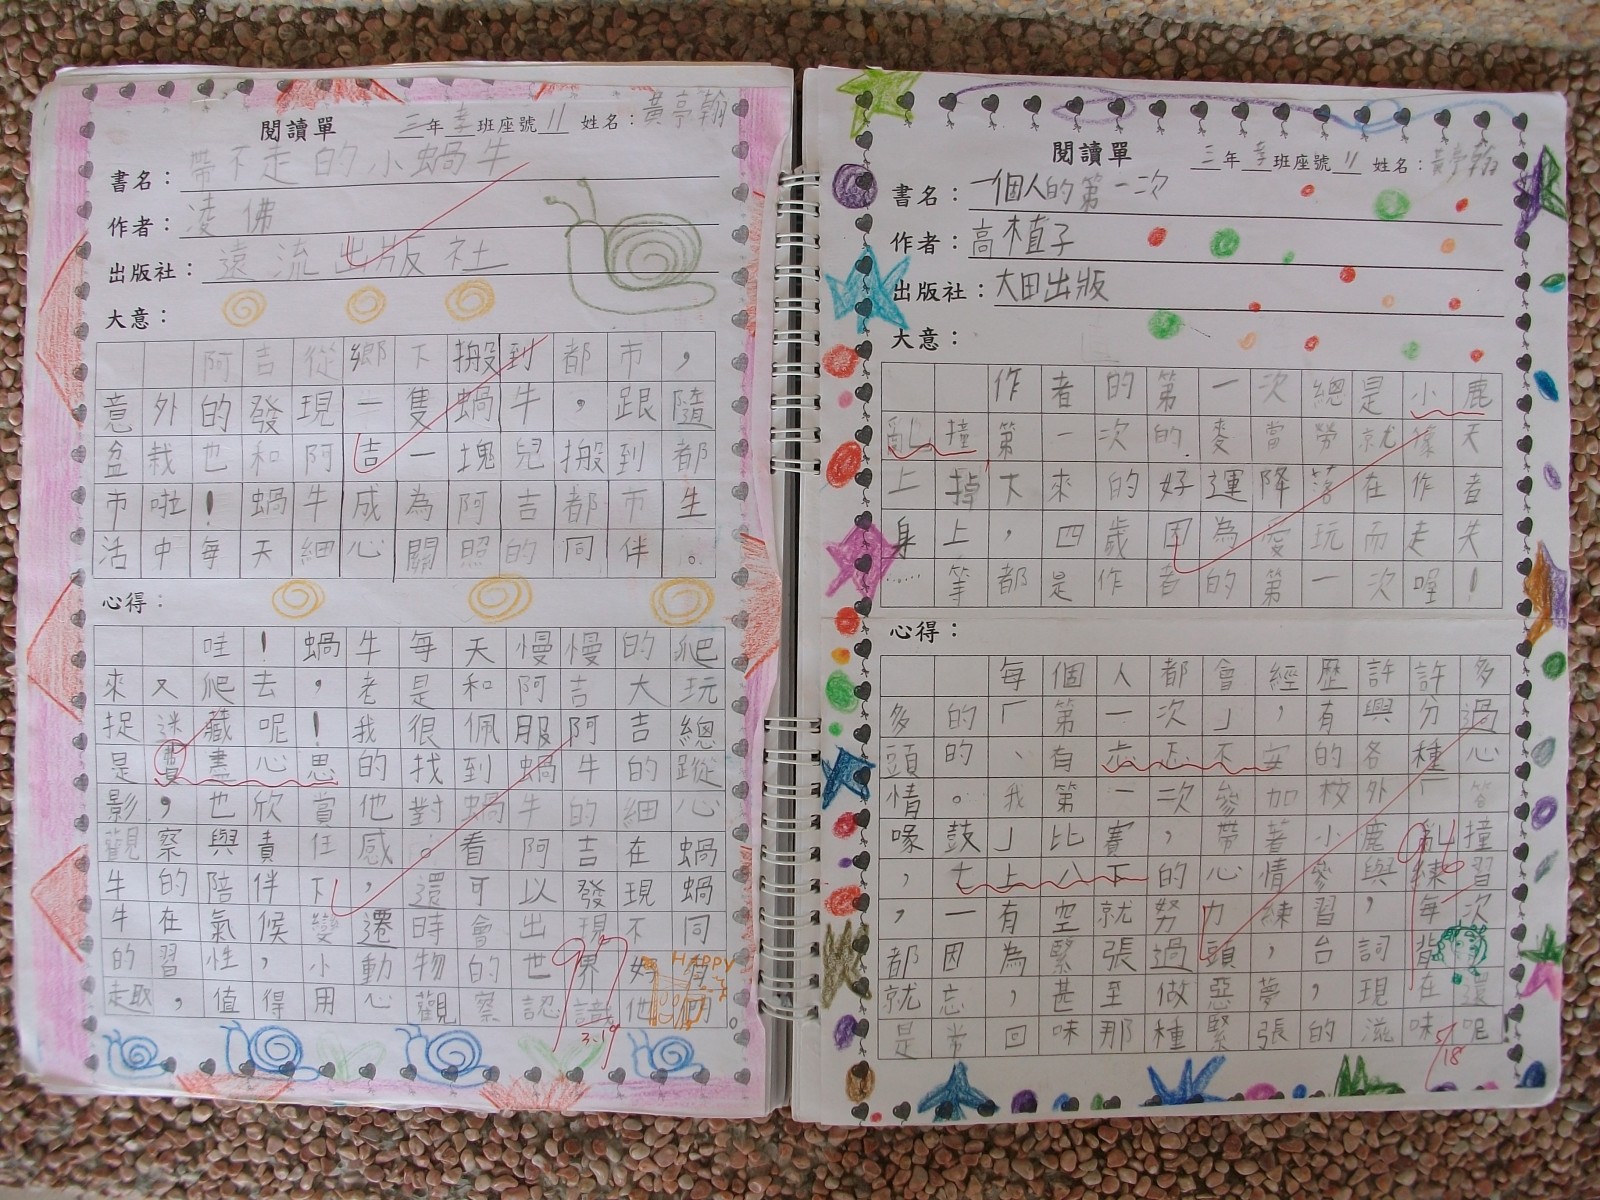 閱讀單
三年幸班座號11 姓名：黃亭翰
書名：帶不走的小蝸牛
作者：凌拂
出版社：遠流出版社
大意：
阿吉從鄉下搬到都市，
意外的發現一隻蝸牛，跟隨
盆栽也和阿吉一塊兒搬到都
市啦！蝸牛成為阿吉都市生
活中每天細心關照的同伴。
心得：
哇！蝸牛每天慢慢的爬
來又爬去，老是和阿吉大玩
捉迷藏呢！我很佩服阿吉總
是費盡心思的找到蝸牛的蹤
影，也欣賞他對蝸牛的細心
觀察與責任感。看阿吉在蝸
牛的陪伴下，還可以發現蝸
牛在氣候變遷時會出現不同
的習性，小動物的世界好有
趣，值得用心觀察認識他們。
97
3.19
HAPPY
閱讀單
三年幸班座號11 姓名：黃亭翰
書名：一個人的第一次
作者：高木直子
出版社：大田出版
大意：
作者的第一次總是小鹿
亂撞第一次的麥當勞就像天
上掉下來的好運降落在作者
身上，四歲因為愛玩而走失
……等都是作者的第一次喔！
心得：
每個人都會經歷許許多
多的「第一次」，有興分過
頭的、有忐忑不安的各種心
情。我第一次參加校外「答
喙鼓」比賽，帶著小鹿亂撞
，七上八下的心情參與練習
，一有空就努力練習，每次
都因為緊張過頭，台詞背
就忘，甚至做惡夢，現在還
是常回味那種緊張的滋味呢！
96
5/18